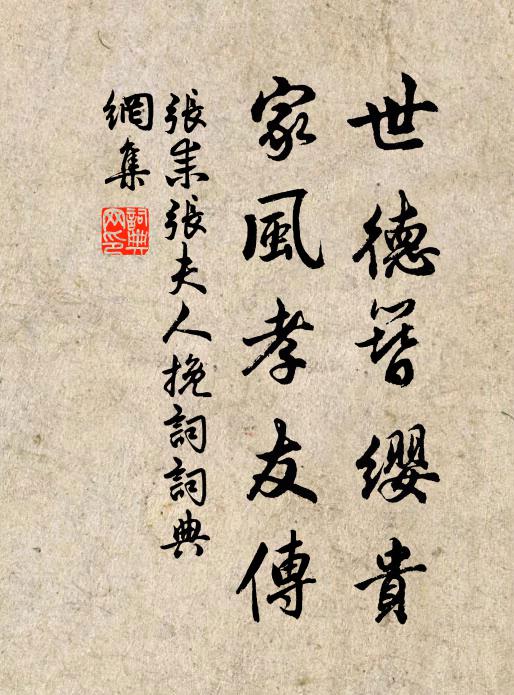 世德簪纓貴
家風孝友傳
張耒張夫人挽詞詞典
網集
詞典網印